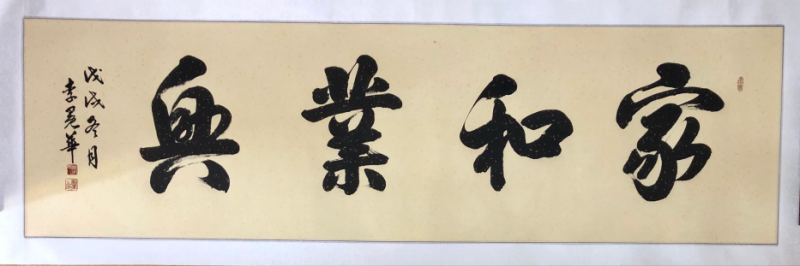 家和業興
戊戌冬月
李冕華